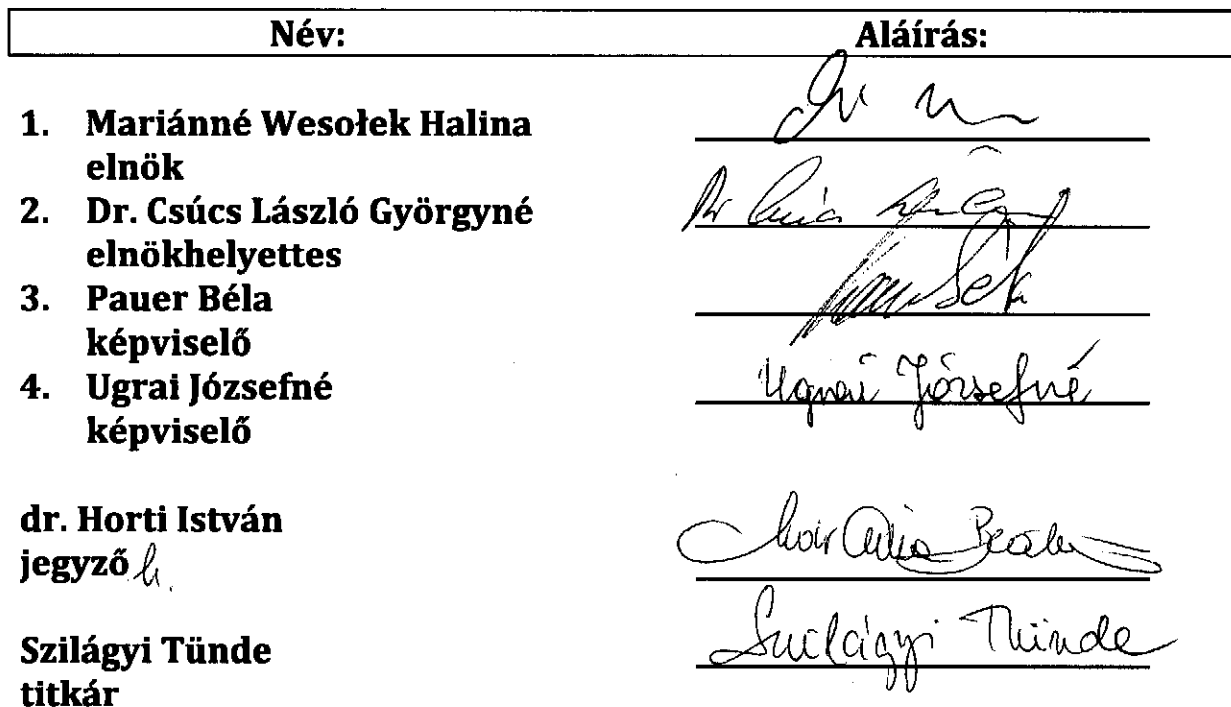 Név: Aláírás:
1. Mariánné Wesołek Halina
elnök
2. Dr. Csúcs László Györgyné
elnökhelyettes
3. Pauer Béla
képviselő Béla
4. Ugrai Józsefné Ugrai Józsefné
képviselő
dr. Horti István
jegyző h.
Szilágyi Tünde Szilágyi Tünde
titkár